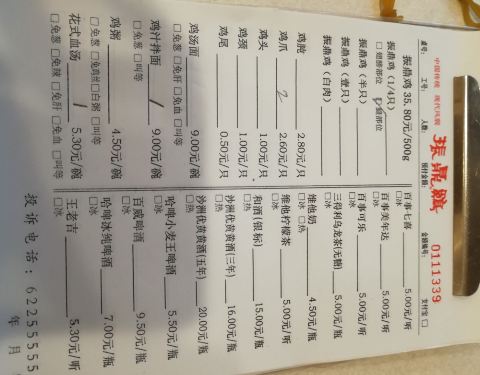 中国传统 现代风貌
振鼎鸡 0111339
桌号: 工号: 人数: 预付金额: 金额编号: 支付宝□
振鼎鸡 35.80元/500g
振鼎鸡 (1/4只)
□翅膀部位
振鼎鸡 (半只)
振鼎鸡 (壹只)
振鼎鸡 (白肉)
鸡肫 2.80元/只
鸡爪 2 2.60元/只
鸡头 1.00元/只
鸡颈 1.00元/只
鸡尾 0.50元/只
鸡汤面 9.00元/碗
□免葱 □免肝 □免血
鸡汁拌面 / 9.00元/碗
□免葱 □叫等
鸡粥 4.50元/碗
□免葱 □白粥 □叫等
花式血汤 1 5.30元/碗
□免葱 □免辣 □免肝 □免血 □叫等
百事七喜 5.00元/听
□冰
百事美年达 5.00元/听
□冰
百事可乐 5.00元/听
□冰
三得利乌龙茶(无糖) 5.00元/瓶
□冰
维他奶 4.50元/瓶
□冰 □热
维他柠檬茶 5.00元/瓶
□冰
和酒(银标) 15.00元/瓶
□热
沙洲优黄酒(三年) 16.00元/瓶
□热
沙洲优黄黄酒(五年) 20.00元/瓶
□热
哈啤小麦王啤酒 5.50元/瓶
□冰
百威啤酒 9.50元/瓶
□冰
哈啤冰纯啤酒 7.00元/瓶
□冰
王老吉 5.30元/听
□冰
投诉电话: 62255555
年 月